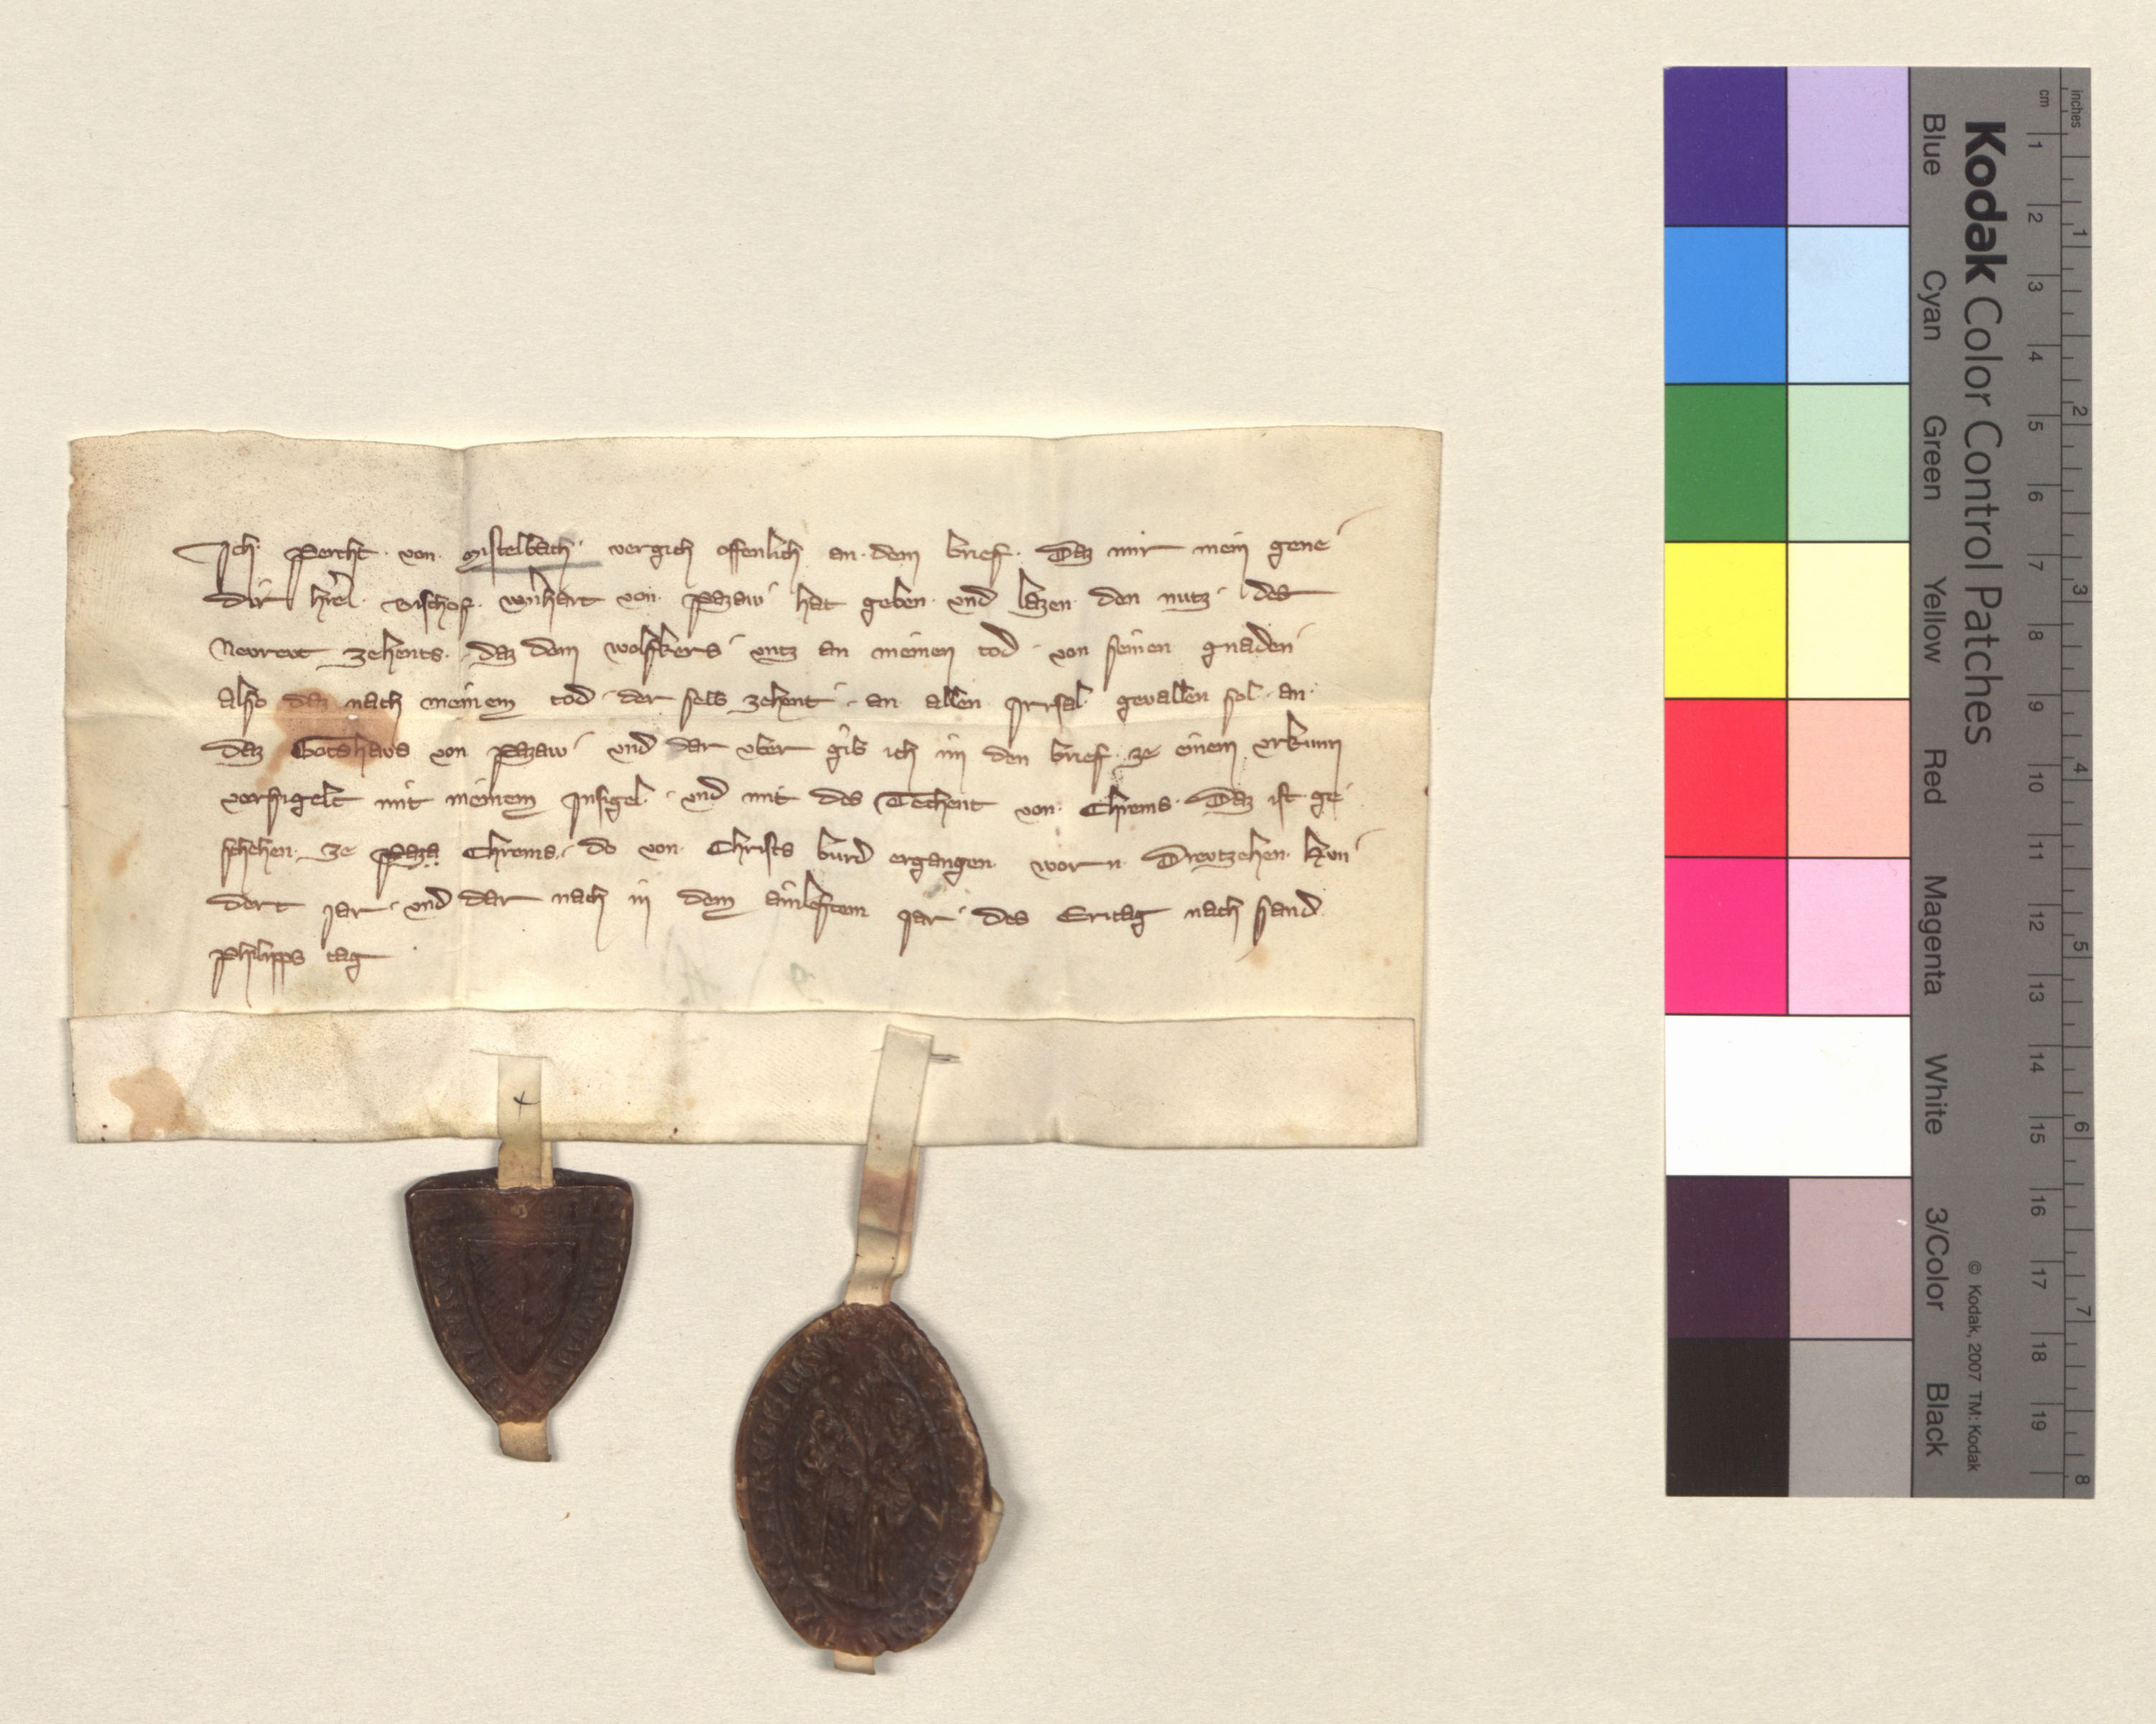 Ich percht von Mistelbach vergich offenlich an dem brief Daz mir mein gene
dir Bischof wernhart von Pazaw hat geben und lazen den nutz des
Nevrevt zehents daz dem wolfkers untz an meinen tod von seinen gnaden
also daz nach meinem tod der selb zehent an allen Irrsal gevallen sol an
daz Gotshavs von Pazaw und dar uber gib ich im den brief ze einem urkunn
versigelt mit meinem Insigel und mit des Techent von Chrems Daz ist ge
schehen ze paza Chrems do von Christs burd ergangen worn Drevtzehen hvn
dert jar und dar nach in dem ainleftem jar des Eritag nach sand
philipps tag
Kodak Color Control Patches
Blue Cyan Green Yellow Red Magenta White 3/Color Black
© Kodak, 2007 TM: Kodak
cm 1 2 3 4 5 6 7 8 9 10 11 12 13 14 15 16 17 18 19
inches 1 2 3 4 5 6 7 8